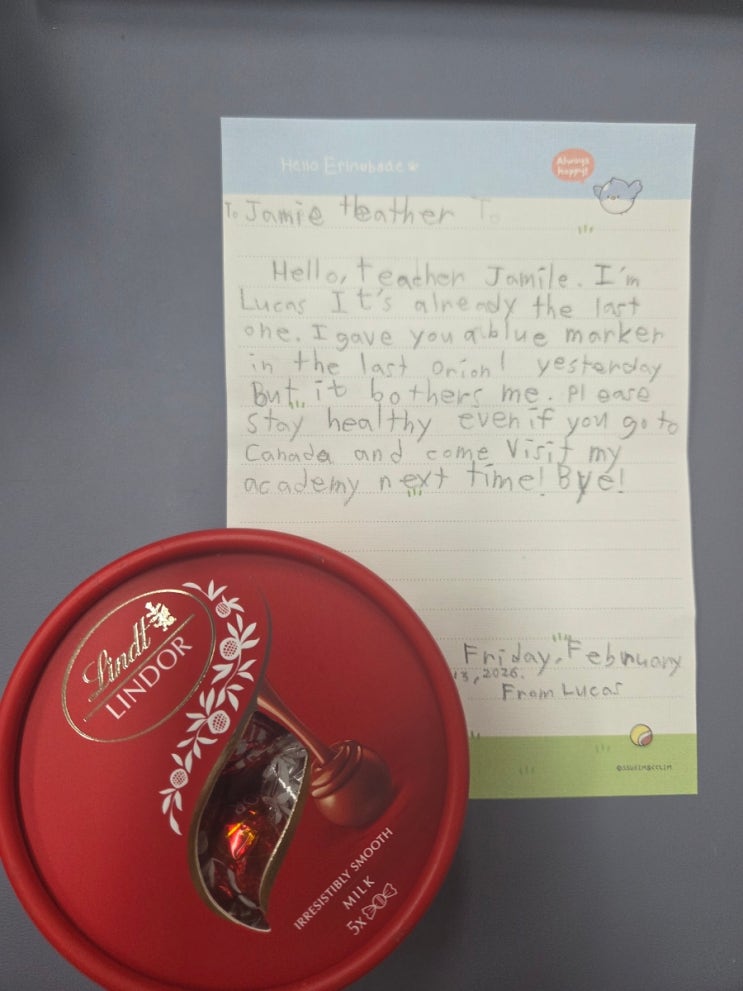 Hello Erinubade
Always
happy!
To Jamie teather To
Hello, teacher Jamile. I'm
Lucas It's already the last
one. I gave you a blue marker
in the last orion! yesterday
But it bothers me. Please
stay healthy even if you go to
Canada and come Visit my
academy next time! Bye!
Friday, February
13, 2026.
From Lucas
Lindt
LINDOR
IRRESISTIBLY SMOOTH
MILK
5x